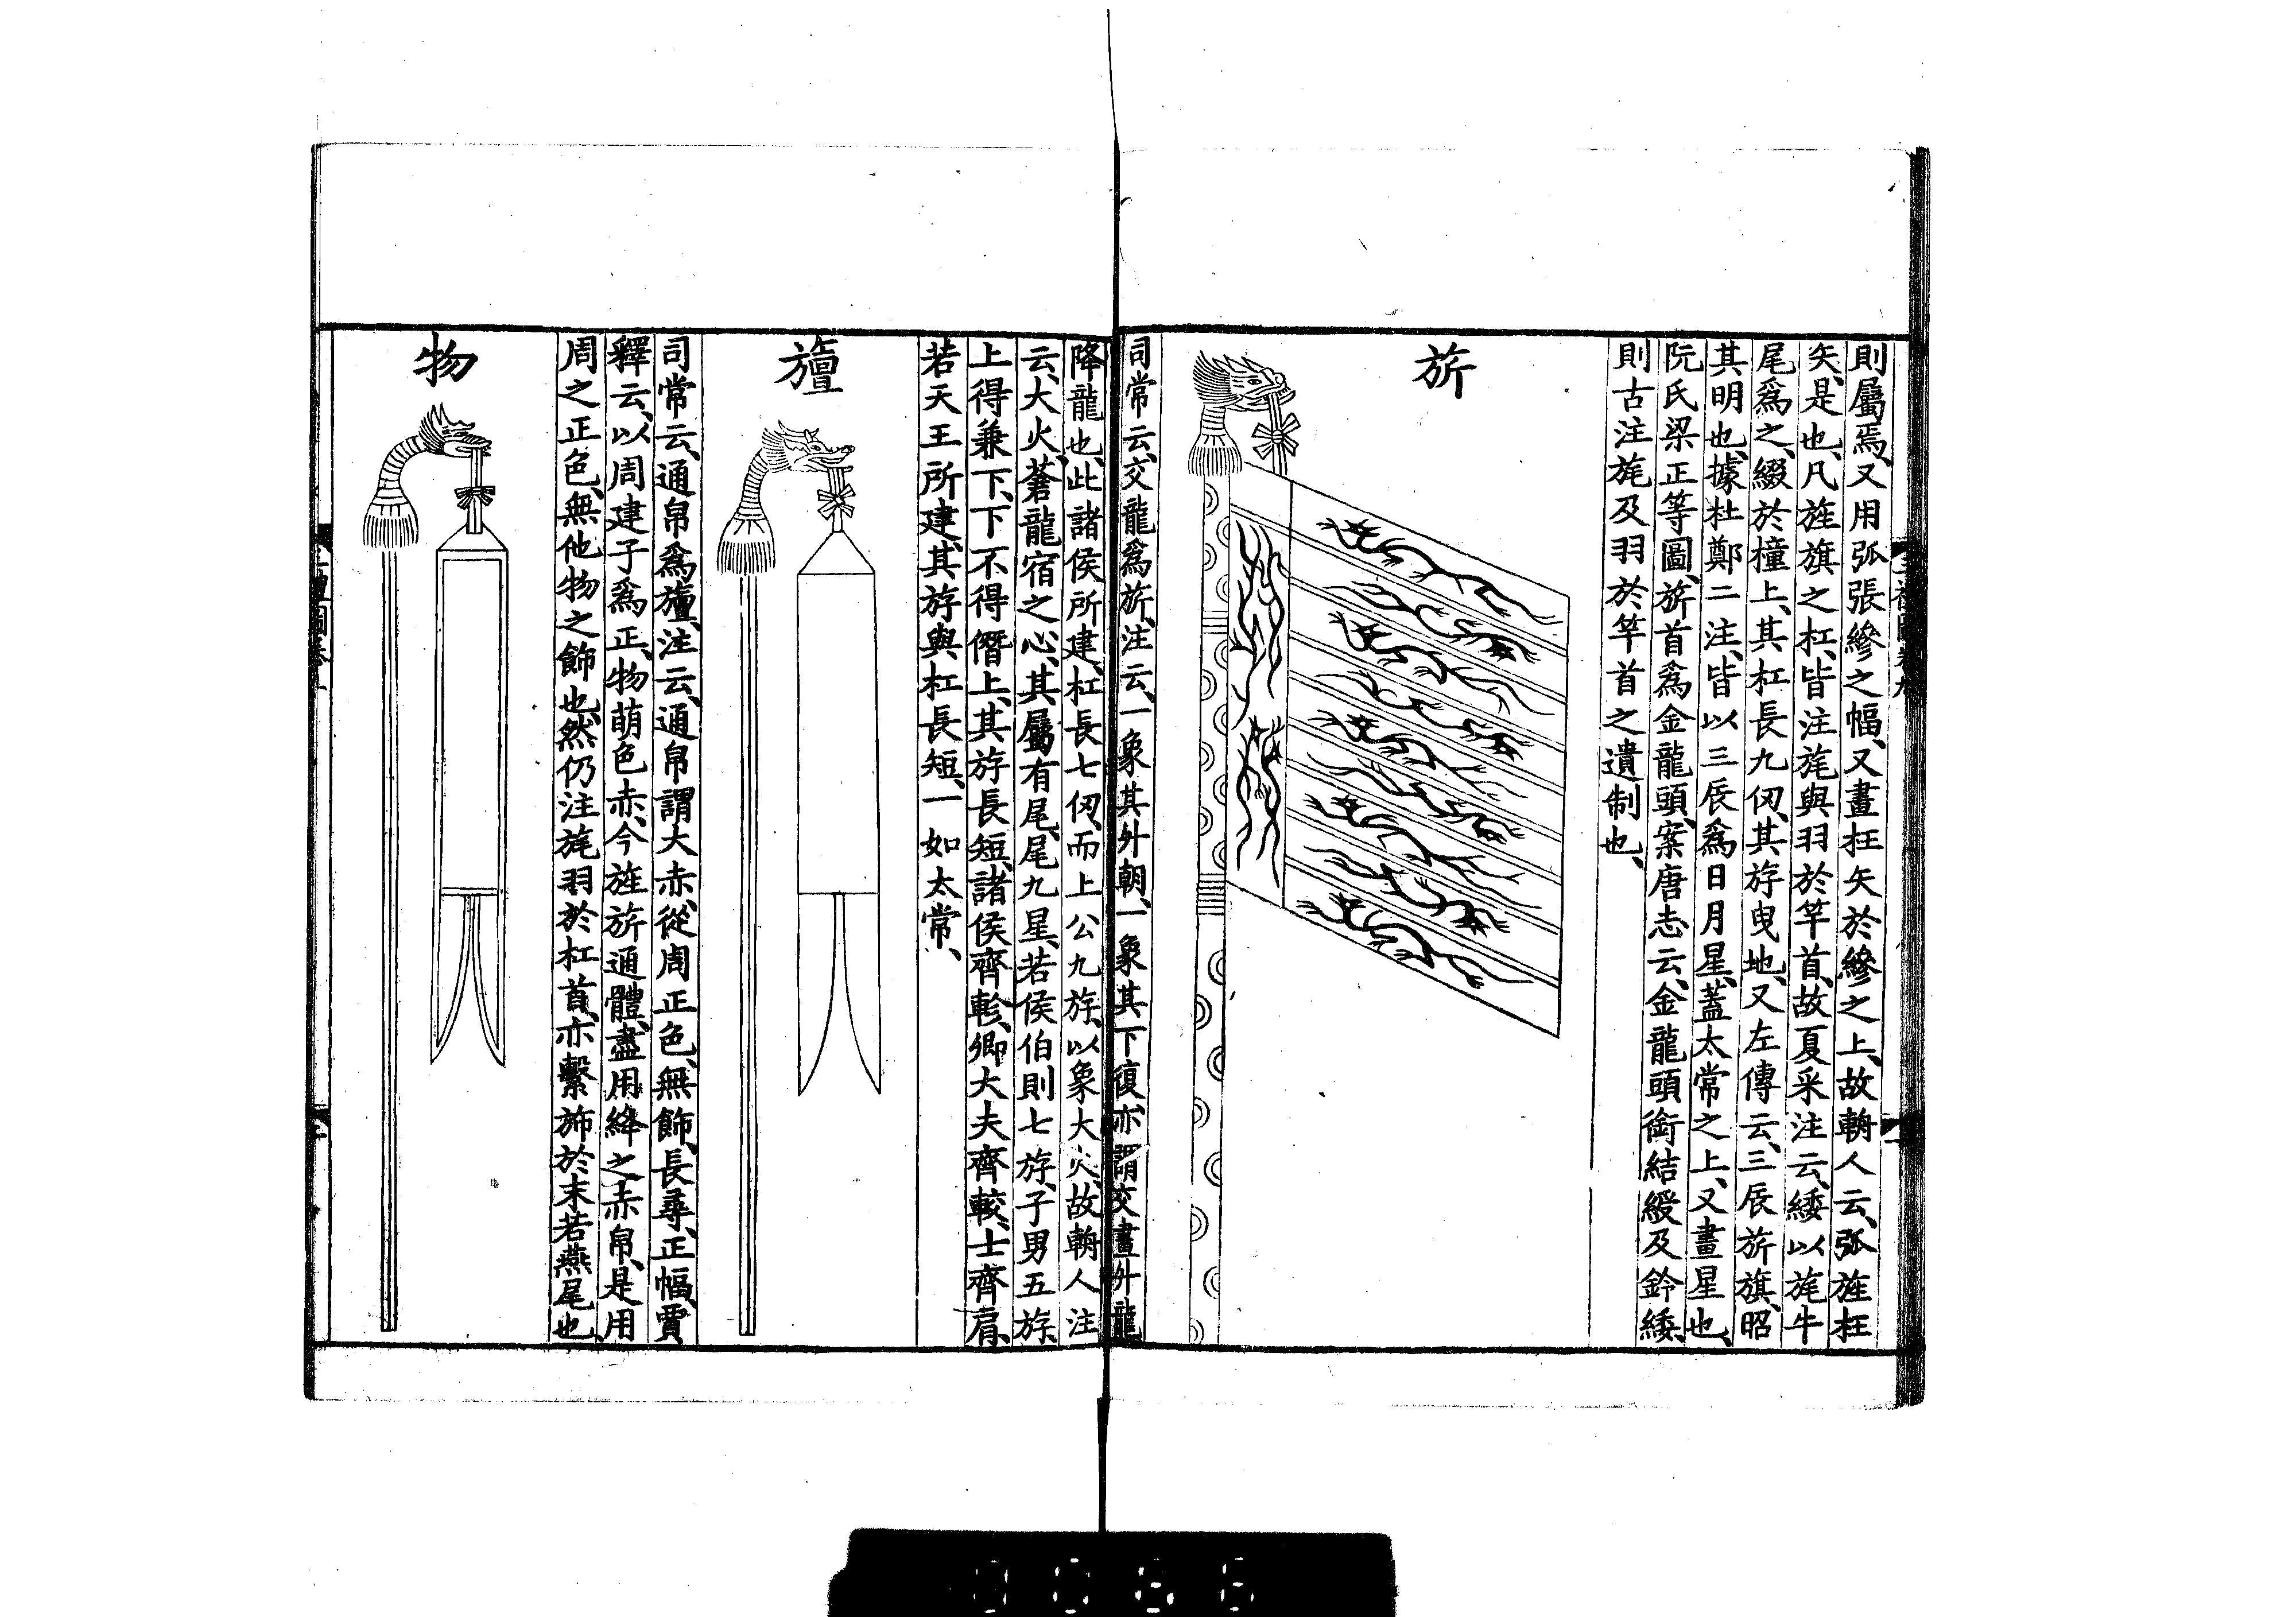 則屬焉、又用弧張縿之幅、又畫枉矢於縿之上、故輈人云、弧旌枉
矢、是也、凡旌旗之杠、皆注旄與羽於竿首、故夏采注云、緌以旄牛
尾爲之、綴於橦上、其杠長九仭、其斿曳地、又左傳云、三辰旂旗、昭
其明也、據杜鄭二注、皆以三辰爲日月星、蓋太常之上、又畫星也、
阮氏梁正等圖、旂首爲金龍頭、案唐志云、金龍頭銜結綬及鈴緌、
則古注旄及羽於竿首之遺制也、
旂
司常云、交龍爲旂、注云、一象其升朝、一象其下復、亦謂交畫升龍
降龍也、此諸侯所建、杠長七仭、而上公九斿、以象大火、故輈人注
云、大火、蒼龍宿之心、其屬有尾、尾九星、若侯伯則七斿、子男五斿、
上得兼下、下不得僭上、其斿長短、諸侯齊軫、卿大夫齊較、士齊肩、
若天王所建、其斿與杠長短、一如太常、
旜
司常云、通帛爲旜、注云、通帛謂大赤、從周正色、無飾、長尋、正幅、賈
釋云、以周建子爲正、物萌色赤、今旌旂通體、盡用絳之赤帛、是用
周之正色、無他物之飾也、然仍注旄羽於杠首、亦繫旆於末若燕尾也、
物